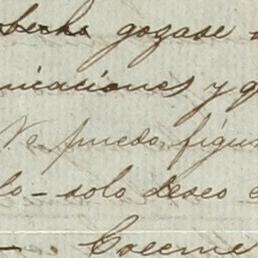 gozase
nicaciones y q
Ve puedo figu
lo - solo deseo e
- Creeme